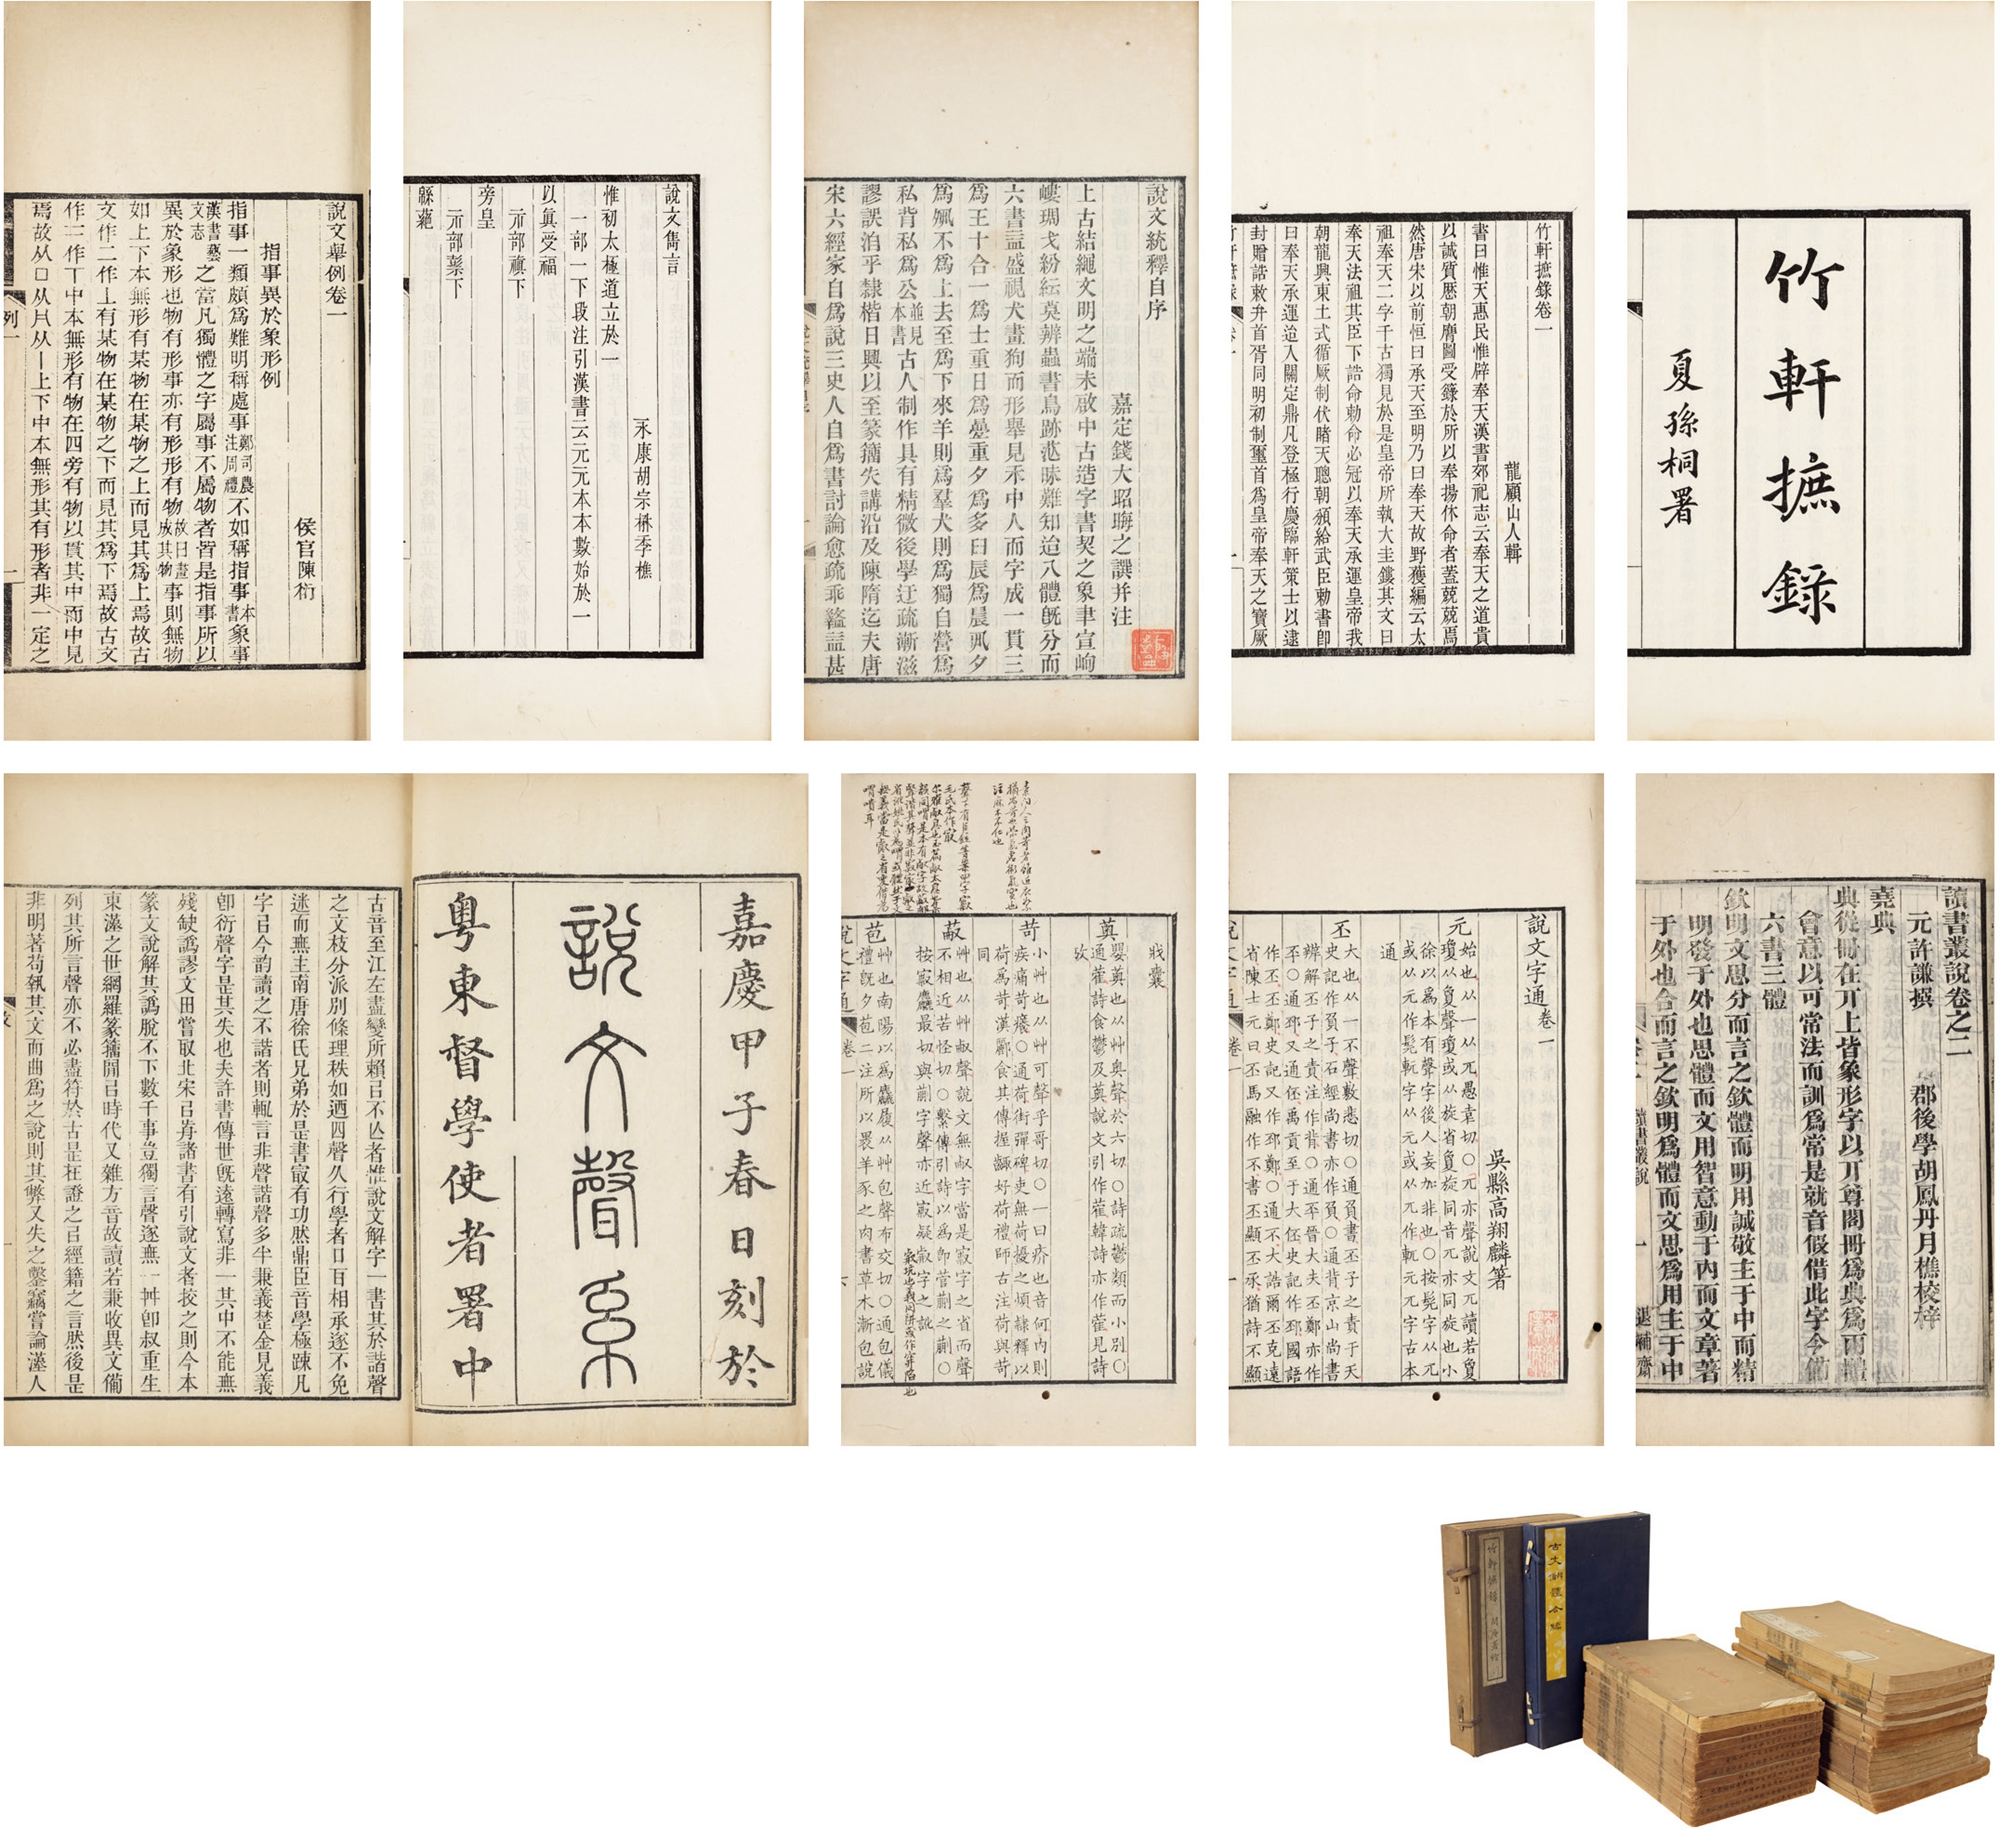 說文舉例卷一
侯官陳衍
指事異於象形例
指事一類頗爲難明稱處事鄭司農注周禮不如稱指事本書象事
漢書藝文志之當凡獨體之字屬事不屬物者皆是指事所以
異於象形也物有形事亦有形形有物故曰畫成其物事則無物
如上下本無形有某物在某物之上而見其爲上焉故古
文作二作丄有某物在某物之下而見其爲下焉故古文
焉故从口从爿从丨上下中本無形其有形者非一定之
列一
說文雋言
永康胡宗楙季樵
惟初太極道立於一
一部一下段注引漢書云元元本本數始於一
以眞受福
示部禛下
旁皇
示部䄏下
繇蕝
說文統釋自序
嘉定錢大昭晦之譔并注
上古結繩文明之端未啟中古造字書契之象聿宣岣
嶁琱戈紛紜莫辨蟲書鳥跡茫昧難知迨八體旣分而
六書益盛視犬畫狗而形舉見禾中人而字成一貫三
爲王十合一爲士重日爲疊重夕爲多臼辰爲晨夙夕
爲夙不爲上去至爲下來羊則爲羣犬則爲獨自營爲
私背私爲公並見本書古人制作具有精微後學迂疏漸滋
謬誤洎乎隸楷日興以至篆籀失講沿及陳隋迄夫唐
宋六經家自爲說三史人自爲書討論愈疏乖盭益甚
竹軒摭錄卷一
龍顧山人輯
書曰惟天惠民惟辟奉天漢書郊祀志云奉天之道貴
以誠質厯朝膺圖受籙於所以奉揚休命者蓋兢兢焉
然唐宋以前恒曰承天至明乃曰奉天故野獲編云太
祖奉天二字千古獨見於是皇帝所執大圭鏤其文曰
奉天法祖其臣下誥命勅命必冠以奉天承運皇帝我
朝龍興東土式循厥制伏睹天聰朝頒給武臣勅書即
曰奉天承運迨入關定鼎凡登極行慶臨軒策士以逮
封贈誥敕弁首胥同明初制璽首爲皇帝奉天之寶厥
竹軒摭錄
夏孫桐署
嘉慶甲子春日刻於
說文聲系
粵東督學使者署中
古音至江左盡變所賴㠯不亾者惟說文解字一書其於諧聲
之文枝分派別條理秩如迺四聲久行學者口耳相承遂不免
迷而無主南唐徐氏兄弟於是書㝡有功然鼎臣音學極疎凡
字㠯今韵讀之不諧者則輒言非聲諧聲多半兼義楚金見義
卽衍聲字是其失也夫許書傳世旣遠轉寫非一其中不能無
殘缺譌謬文田嘗取北宋㠯歬諸書有引說文者挍之則今本
篆文說解其譌脫不下數千事豈獨言聲逐無一舛卽叔重生
東漢之世網羅篆籀閒㠯時代又雜方音故讀若兼收異文僃
列其所言聲亦不必盡符於古是在證之㠯經籍之言然後是
非明著苟執其文而曲爲之說則其弊又失之鑿竊嘗論漢人
戕囊
薁 嬰薁也从艸奧聲於六切〇詩疏鬱類而小別〇
通雚詩食鬱及薁說文引作雚韓詩亦作雚見詩
攷
苛 小艸也从艸可聲乎哥切〇一曰疥也音何內則
疾痛苛癢〇通荷街彈碑吏無荷擾之煩隸釋以
荷爲苛漢酈食其傳握齱好荷禮師古注荷與苛
同
蔽 艸也从艸𣁋聲說文無𣁋字當是㝮字之省而聲
苞 艸也南陽以爲麤履从艸包聲布交切〇通包儀
禮旣夕苞二注所以畏羊豕之肉書草木漸包說
說文字通 卷一
吳縣高翔麟箸
元 始也从一从兀愚袁切〇元亦聲說文兀讀若敻
瓊从敻聲瓊或从旋省敻旋同音兀亦同旋也小
徐以爲本有聲字後人妄加非也〇按髡字从兀
或从元作髨軏字从元或从兀作軏元兀字古本
通
丕 大也从一不聲敷悲切〇通負書丕子之責于天
史記作負子石經尚書亦作負〇通背京山尚書
辨解丕子之責注作背〇通平晉大夫丕鄭亦作
㔻〇通邳又通伾禹貢至于大伾史記作邳國語
作丕丕鄭史記又作邳鄭〇通不大誥爾丕克遠
省陳士元曰丕馬融作不書丕顯丕承猶詩不顯
讀書叢說卷之二
元許謙撰 郡後學胡鳳丹月樵校梓
堯典
典從冊在丌上皆象形字以丌尊閣冊爲典爲兩體
會意以可常法而訓爲常是就音假借此字今備
六書三體
欽明文思分而言之欽體而明用誠敬主于中而精
明發于外也思體而文用智意動于內而文章著
于外也合而言之欽明爲體而文思爲用主于中
讀書叢說
退補齋
竹軒摭錄